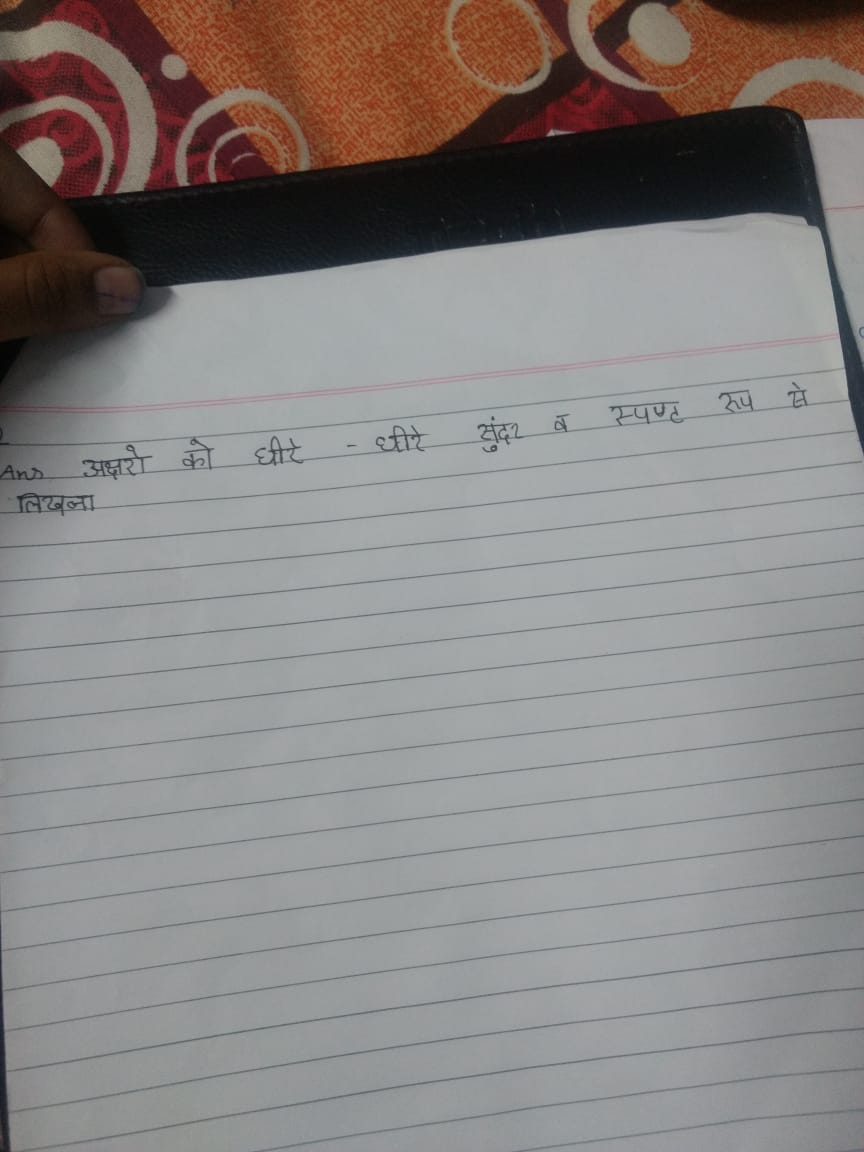 Ans अक्षरो को धीरे - धीरे सुंदर व स्पष्ट रूप से
लिखना